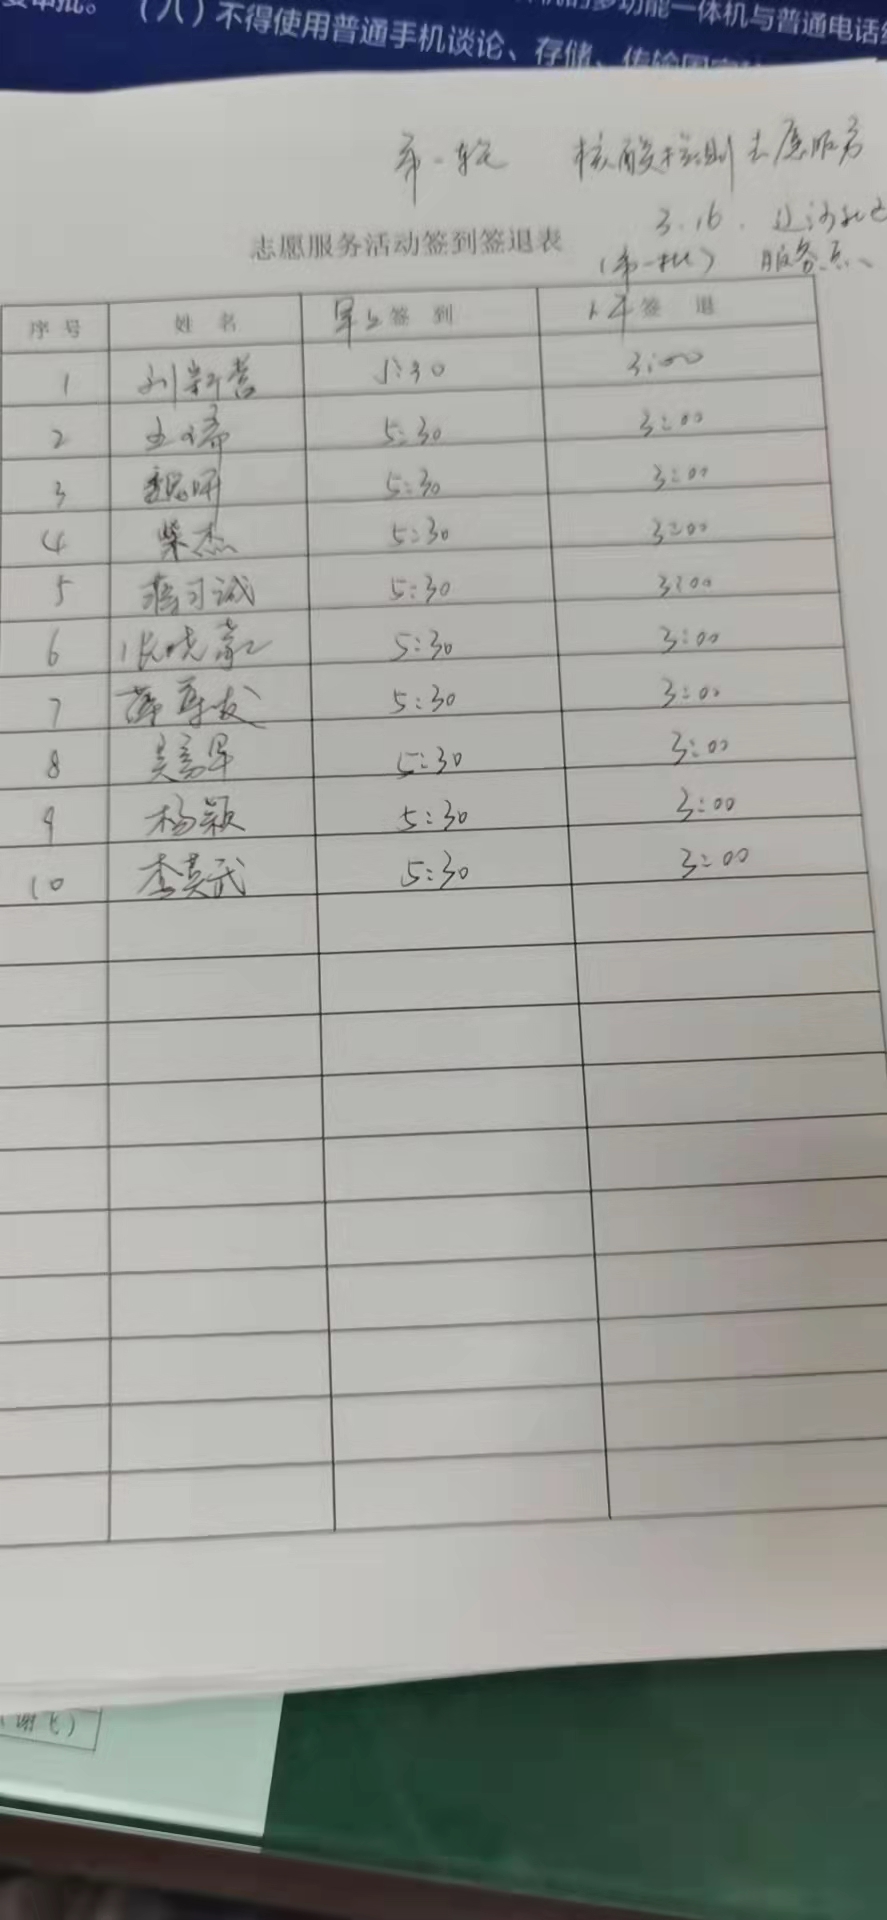 审批。 (八)不得使用普通手机谈论、存储、传输国家
多功能一体机与普通电话
第一轮 核酸检测志愿服务
3.16.
志愿服务活动签到签退表
(第一批) 服务点
序号 姓名 早上签到 下午签退
1 刘新营 5:30 3:00
2 5:30 3:00
3 魏明 5:30 3:00
4 柴杰 5:30 3:00
5 蒋习诚 5:30 3:00
6 张晓 5:30 3:00
7 薛 5:30 3:00
8 5:30 3:00
9 杨颖 5:30 3:00
10 李英武 5:30 3:00